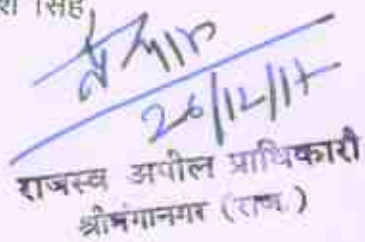 सिंह
26/12/17
राजस्व अपील प्राधिकारी
श्रीगंगानगर (राज.)